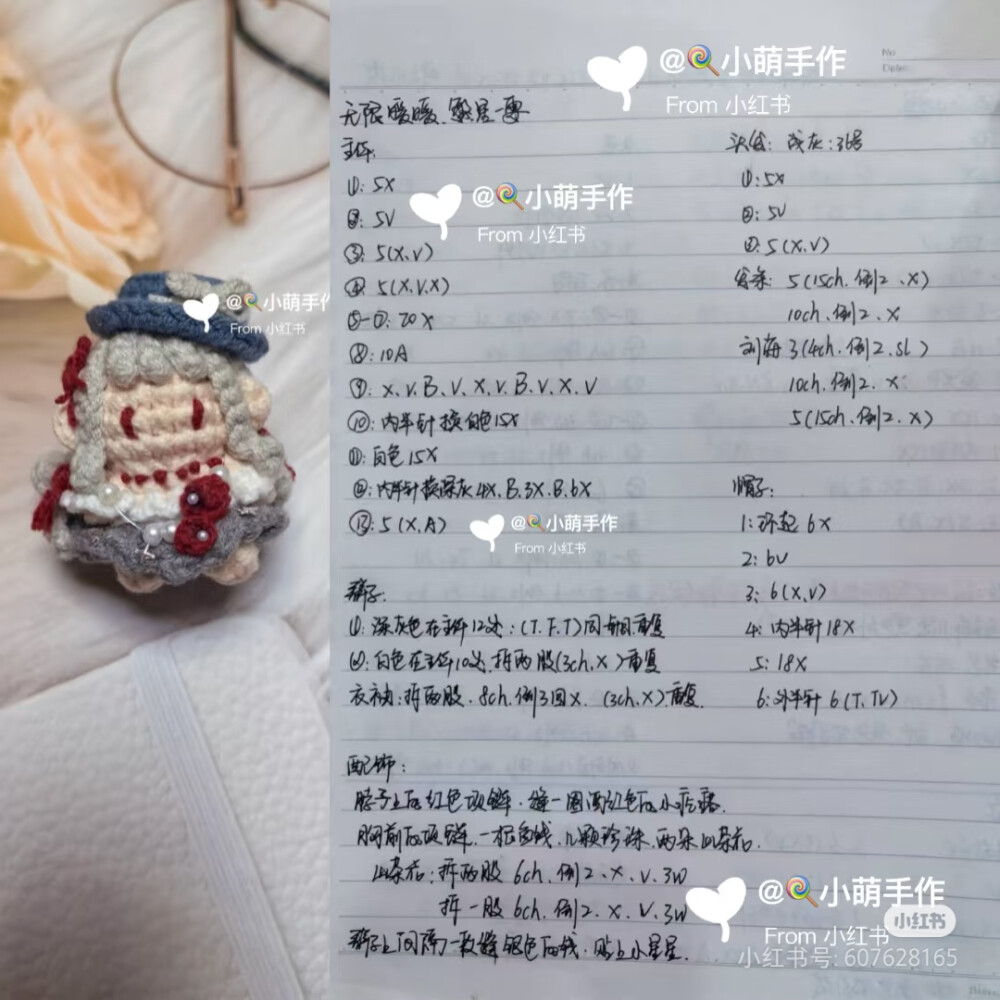 @小萌手作
From 小红书
无限暖暖.繁星一要
主体:
①: 5X
②: 5V
③: 5(X.V)
④: 5(X.V.X)
⑤-⑦: 20X
⑧: 10A
⑨: X.V.B.V.X.V.B.V.X.V
⑩: 内半针换白色15X
⑪: 白色15X
⑫: 内半针换深灰4X.B.3X.B.6X
⑬: 5(X.A)
裙子:
①: 深灰色在主体12处: (T.F.T)同一针目重复
②: 白色在主体10处.拆两股(3ch.X)重复
衣袖: 拆两股.8ch.倒3回X.(3ch.X)重复.
头发: 浅灰: 36号
①: 5X
②: 5V
③: 5(X.V)
发条: 5(15ch.倒2.X)
10ch.倒2.X
刘海3(4ch.倒2.SL)
10ch.倒2.X
5(15ch.倒2.X)
帽子:
1: 环起6X
2: 6V
3: 6(X.V)
4: 内半针18X
5: 18X
6: 外半针6(T.TV)
配饰:
脖子上的红色项链.缝一圈酒红色的小
胸前的项链.一根鱼线.几颗珍珠.两朵山茶花.
山茶花: 拆两股6ch.倒2.X.V.3W
拆一股6ch.倒2.X.V.3W
裙子上间隔一针缝银色的线.贴上小星星.
@小萌手作
From 小红书
@小萌手作
From 小红书
@小萌手作
From 小红书
@小萌手作
From 小红书
小红书
小红书号: 607628165